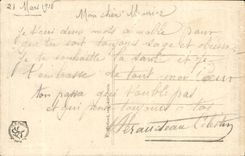 21 Mars 1918
Mon chéri Maurice
Je t'envoi deux mots a malle pour
que tu soit toujours sage et
Je te souhaite la santé et je
t'embrasse de tout mon Cœur
ton papa qui t'oublie pas
et qui pense toujours a toi
Célestin